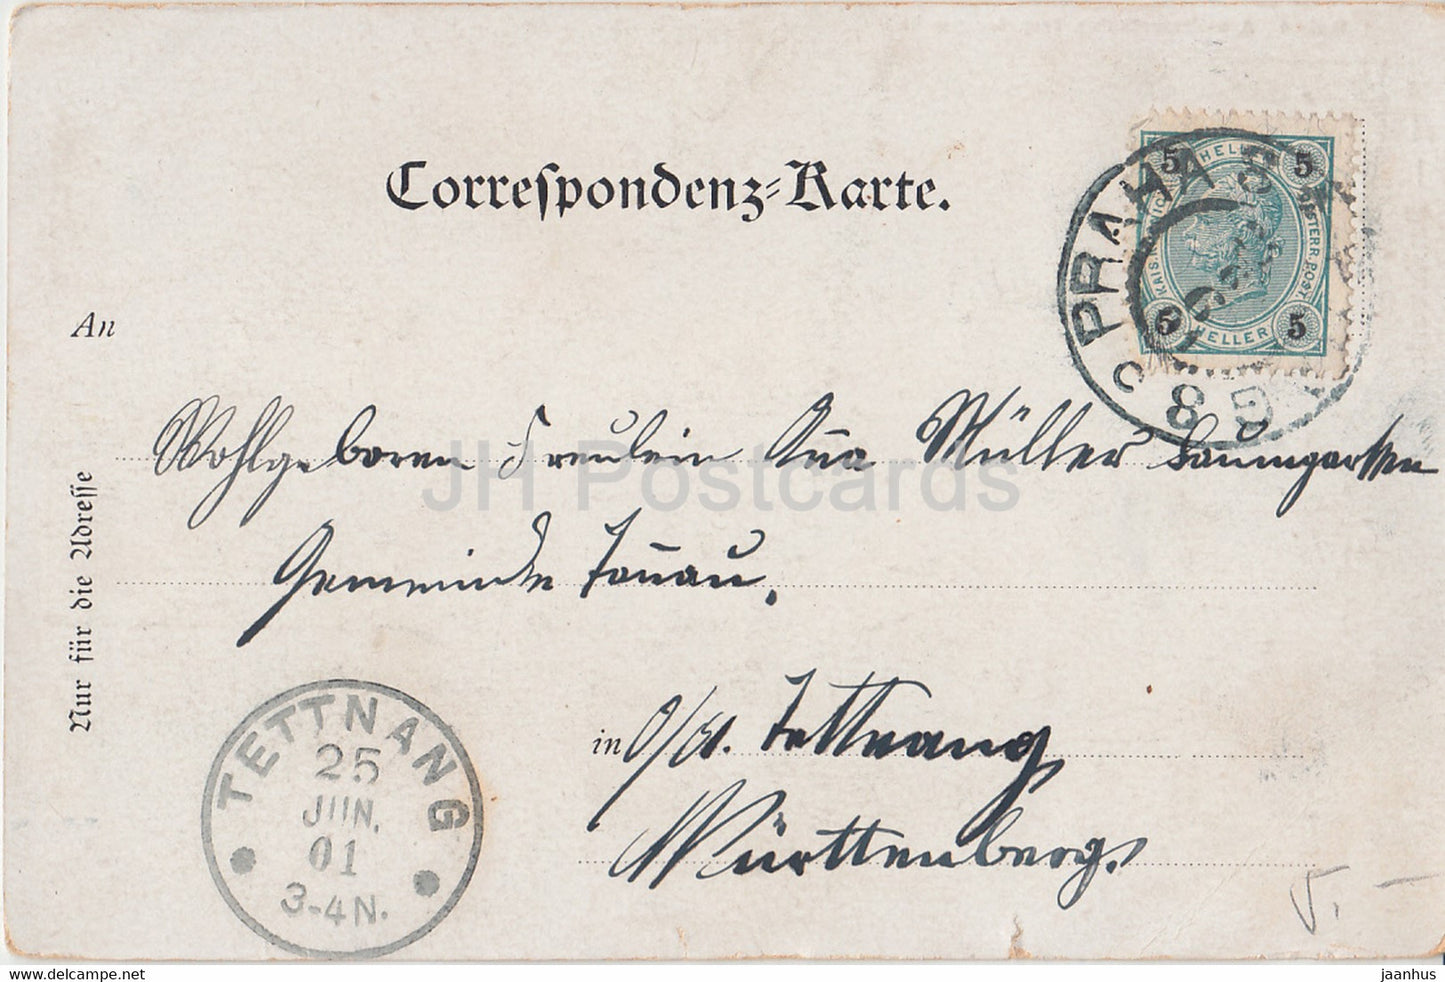 Correspondenz-Karte.
5 HELLER 5
5 HELLER 5
ÖSTERR. POST
PRAHA
8
An
Wohlgeboren Freulein Müller Baumgarten
Gemeinde Tannau.
in O/A. Tettnang
Württemberg.
Nur für die Adresse
TETTNANG
25
JUN.
01
3-4N.
JH Postcards
https://jhpostcards.com
jaanhus